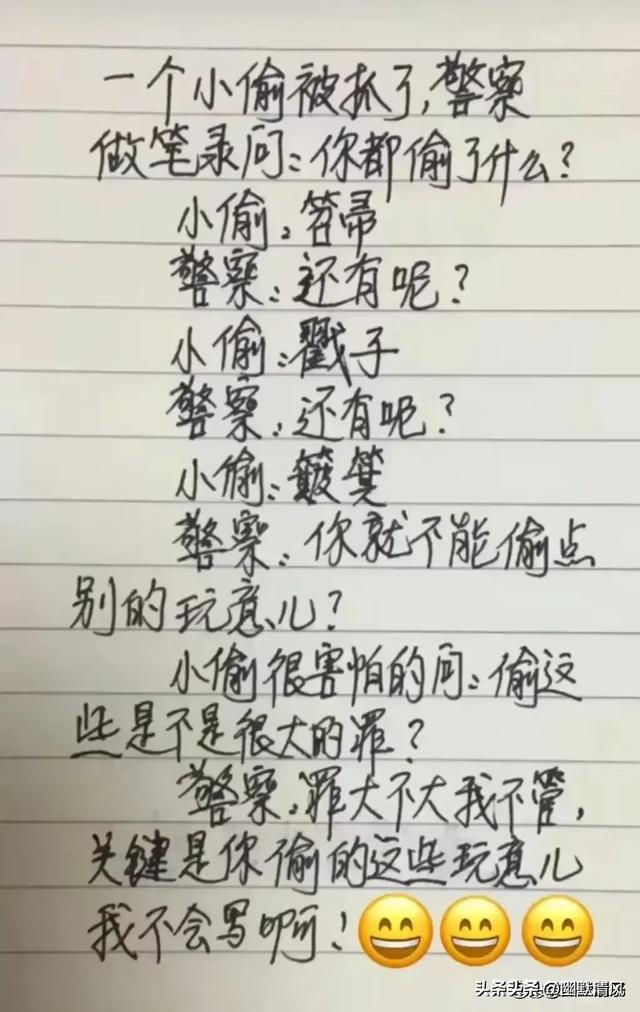 一个小偷被抓了,警察
做笔录问:你都偷了什么?
小偷:笤帚
警察:还有呢?
小偷:戳子
警察:还有呢?
小偷:簸箕
警察:你就不能偷点
别的玩意儿?
小偷很害怕的问:偷这
些是不是很大的罪?
警察:罪大不大我不管,
关键是你偷的这些玩意儿
我不会写啊!😄😄😄
@幽默清风